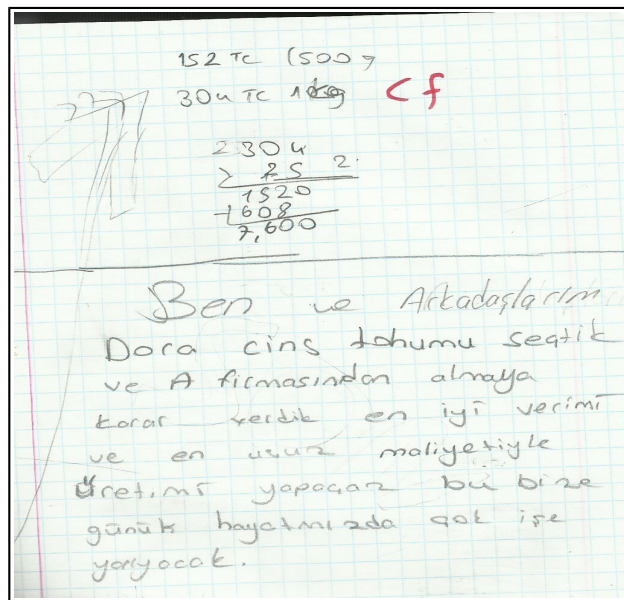 152 TC (500 g
304 TC 1kg
< f
2 304
25 2.
1520
+608
7,600
Ben ve Arkadaşlarım
Dora cins tohumu seçtik
ve A firmasından almaya
karar verdik en iyi verimi
ve en ucuz maliyetiyle
Üretimi yapacaz bu bize
günük hayatmızda çok işe
yarıyocak.